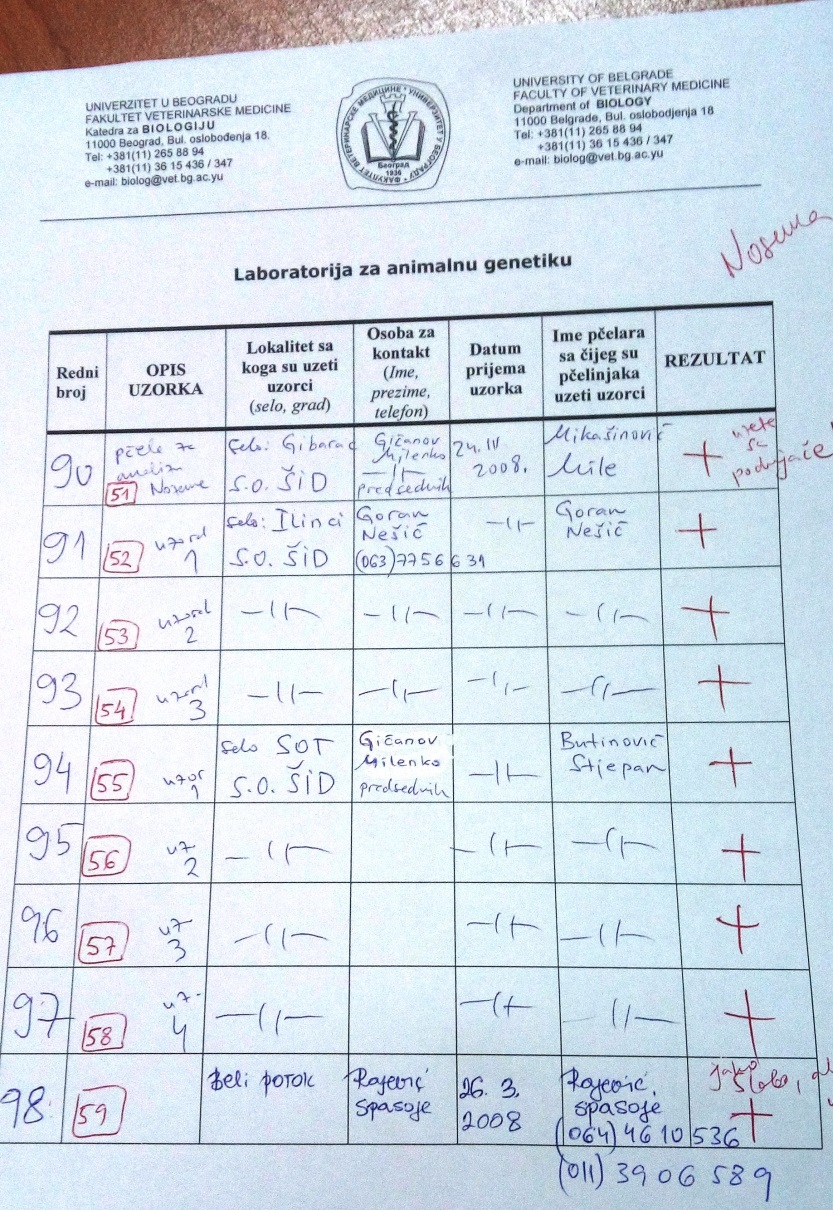 UNIVERZITET U BEOGRADU
FAKULTET VETERINARSKE MEDICINE
Katedra za BIOLOGIJU
11000 Beograd, Bul. oslobođenja 18.
Tel: +381(11) 265 88 94
+381(11) 36 15 436 / 347
e-mail: biolog@vet.bg.ac.yu
ФАКУЛТЕТ ВЕТЕРИНАРСКЕ МЕДИЦИНЕ • УНИВЕРЗИТЕТ У БЕОГРАДУ
Београд
1936
UNIVERSITY OF BELGRADE
FACULTY OF VETERINARY MEDICINE
Department of BIOLOGY
11000 Belgrade, Bul. oslobodjenja 18
Tel: +381(11) 265 88 94
+381(11) 36 15 436 / 347
e-mail: biolog@vet.bg.ac.yu
Nosema
Laboratorija za animalnu genetiku
Redni broj
OPIS UZORKA
Lokalitet sa koga su uzeti uzorci (selo, grad)
Osoba za kontakt (Ime, prezime, telefon)
Datum prijema uzorka
Ime pčelara sa čijeg su pčelinjaka uzeti uzorci
REZULTAT
90
pčele za
51 Noseme
selo: Gibarac
S.O. ŠID
Gičanov
Milenko
—||—
predsednik
24. IV
2008.
Mikašinović
Mile
+
uzete
sa
podnjače!
91
52
uzorak
1
selo: Ilinci
S.O. ŠID
Goran
Nešić
(063) 7756 631
—||—
Goran
Nešić
+
92
53
uzorak
2
—||—
—||—
—||—
—||—
+
93
54
uzorak
3
—||—
—||—
—||—
—||—
+
94
55
uzor
1
selo SOT
S.O. ŠID
Gičanov
Milenko
predsednik
—||—
Butinović
Stjepan
+
95
56
uz
2
—||—
—||—
—||—
+
96
57
uz
3
—||—
—||—
—||—
+
97
58
uz.
4
—||—
—||—
—||—
+
98.
59
Beli potok
Rajević
Spasoje
26. 3.
2008
Rajević,
Spasoje
(064) 46 10 536
(011) 3906 589
jako
slabo,
+